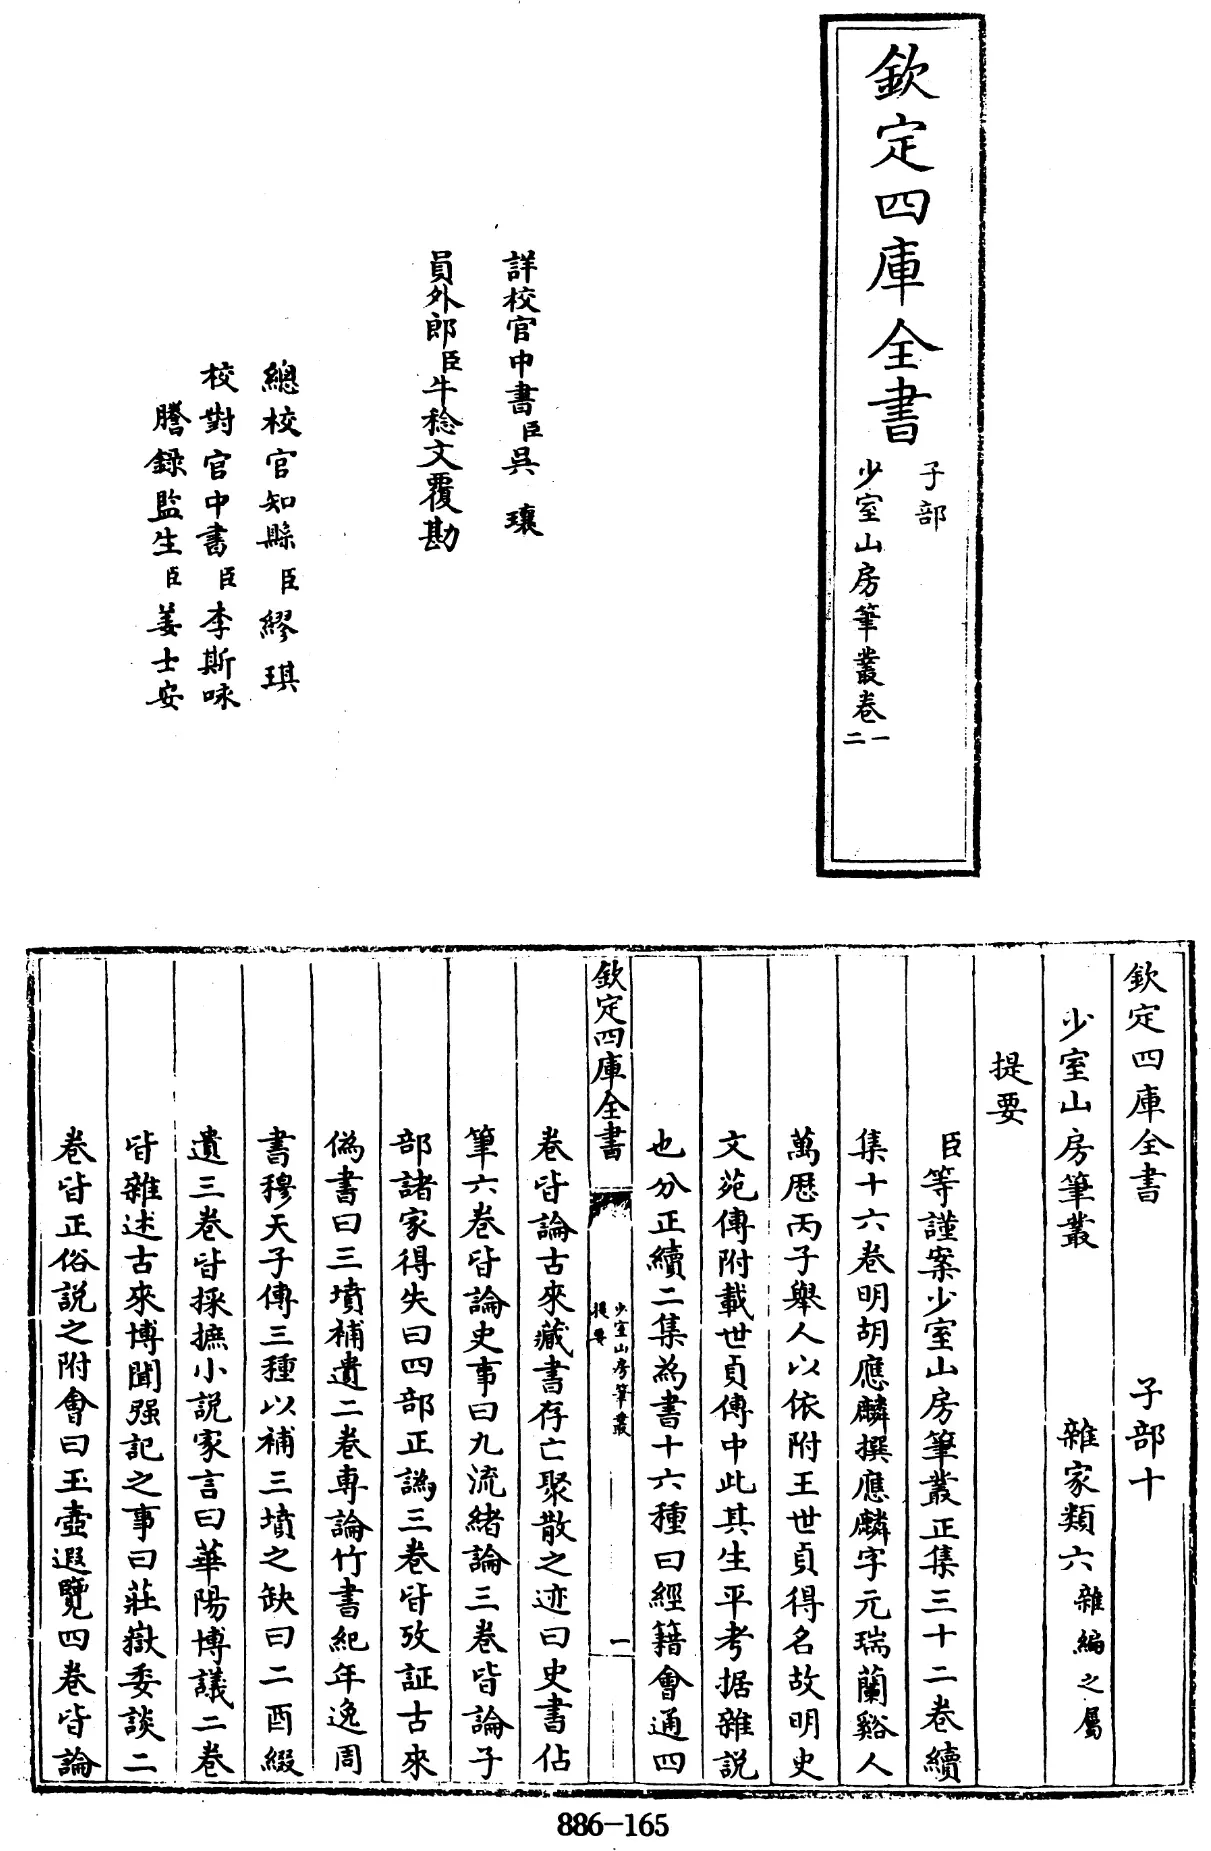 欽定四庫全書
子部
少室山房筆叢卷一二
詳校官中書臣吳瓖
員外郎臣牛稔文覆勘
總校官知縣臣繆琪
校對官中書臣李斯咏
謄錄監生臣姜士安
欽定四庫全書　子部十
少室山房筆叢　雜家類六雜編之屬
提要
臣等謹案少室山房筆叢正集三十二卷續
集十六卷明胡應麟撰應麟字元瑞蘭谿人
萬歷丙子舉人以依附王世貞得名故明史
文苑傳附載世貞傳中此其生平考据雜説
也分正續二集為書十六種曰經籍會通四
欽定四庫全書
少室山房筆叢
提要
一
卷皆論古來藏書存亡聚散之迹曰史書佔
筆六卷皆論史事曰九流緒論三卷皆論子
部諸家得失曰四部正譌三卷皆攷証古來
偽書曰三墳補遺二卷專論竹書紀年逸周
書穆天子傳三種以補三墳之缺曰二酉綴
遺三卷皆採摭小説家言曰華陽博議二卷
皆雜述古來博聞强記之事曰莊嶽委談二
卷皆正俗説之附會曰玉壺遐覽四卷皆論
886-165